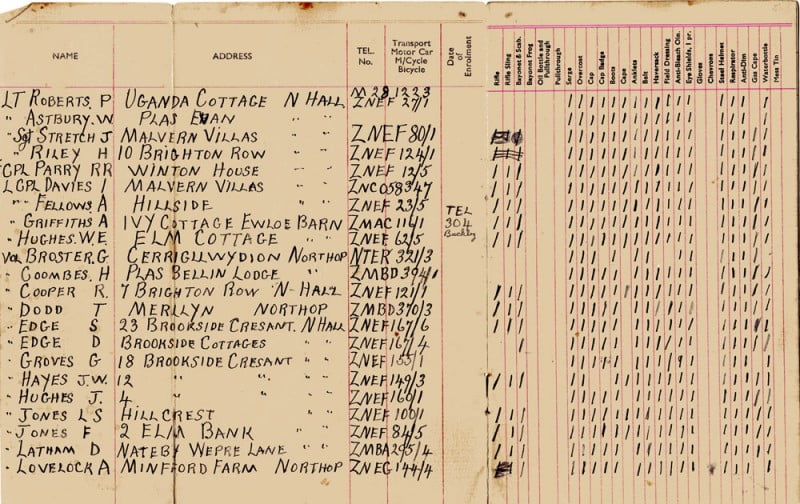 NAME ADDRESS TEL. No. Transport Motor Car M/Cycle Bicycle Date of Enrolment Rifle Rifle Sling Bayonet & Scab. Bayonet Frog Oil Bottle and Pullthrough Pullthrough Serge Overcoat Cap Cap Badge Boots Cape Anklets Belt Haversack Field Dressing Anti-Bleach Oin. Eye Shields, 1 pr. Gloves Chevrons Steel Helmet Respirator Anti-Dim Gas Cape Waterbottle Mess Tin
M 281223
LT ROBERTS. P UGANDA COTTAGE N HALL ZNEF 27/1
" ASTBURY. W PLAS " "
" Sgt STRETCH J MALVERN VILLAS " " ZNEF 80/1
" RILEY H 10 BRIGHTON ROW " " ZNEF 124/1
CPL PARRY RR WINTON HOUSE " " ZNEF 12/5
LCPL DAVIES I MALVERN VILLAS " " ZNCO58347
" " FELLOWS A HILLSIDE " " ZNEF 23/5 TEL
" GRIFFITHS A IVY COTTAGE EWLOE BARN ZMAC 116/1 304
" HUGHES. W.E ELM COTTAGE " " ZNEF 62/5 Buckley
Vol BROSTER. G CERRIGLLWYDION NORTHOP NTER 321/3
" COOMBES. H PLAS BELLIN LODGE " ZMBD 394/1
" COOPER R. 7 BRIGHTON ROW N-HALL ZNEF 121/1
" DODD T MERLLYN NORTHOP ZMBD 370/3
" EDGE S 23 BROOKSIDE CRESANT. N HALL ZNEF 167/6
" EDGE D BROOKSIDE COTTAGES " " ZNEF 167/4
" GROVES G 18 BROOKSIDE CRESANT " " ZNEF 155/1
" HAYES J.W. 12 " " " ZNEF 149/3
" HUGHES J. 4 " " " ZNEF 160/1
" JONES L S HILLCREST " " ZNEF 100/1
" JONES F 2 ELM BANK " " ZNEF 84/5
" LATHAM D NATEBY WEPRE LANE " " ZMBA 295/4
" LOVELOCK A MINFFORD FARM NORTHOP ZNEG 144/4